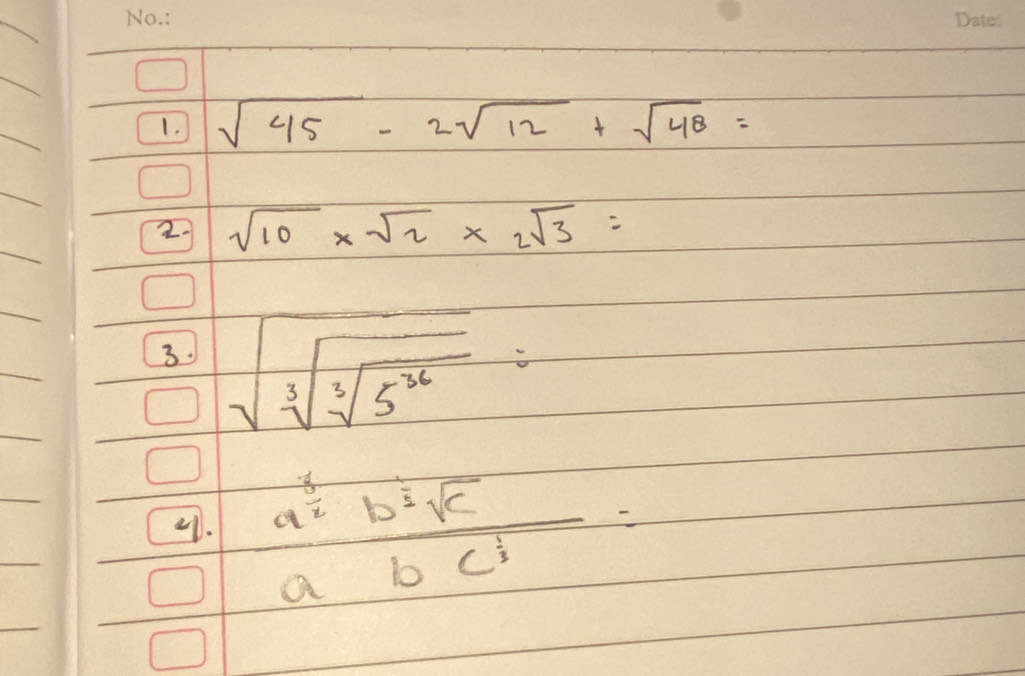 No.: Date:
1. √45 - 2√12 + √48 =
2. √10 × √2 × 2√3 =
3. √(∛(∛(5³⁶))) =
4. a b √c =
a b c^(1/3)